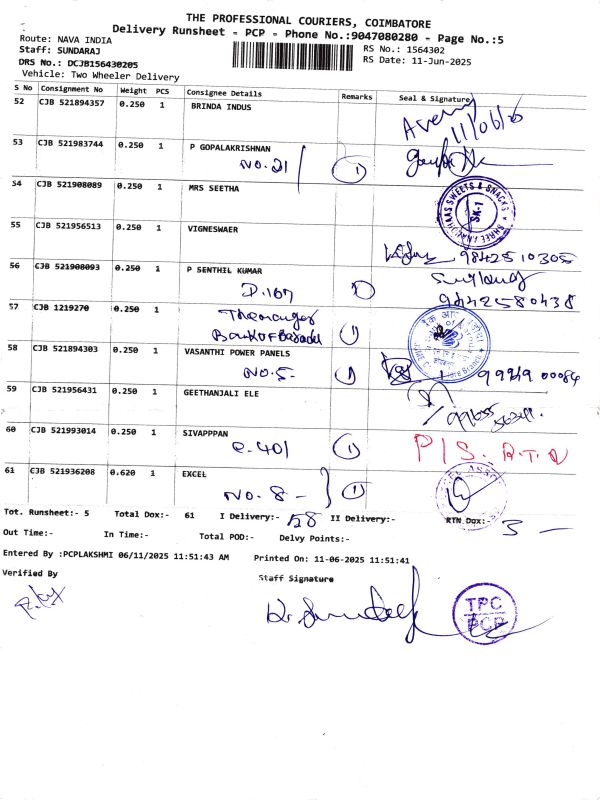 THE PROFESSIONAL COURIERS, COIMBATORE
Delivery Runsheet - PCP - Phone No.:9047080280 - Page No.:5
Route: NAVA INDIA
Staff: SUNDARAJ
RS No.: 1564302
DRS No.: DCJB156430205
RS Date: 11-Jun-2025
Vehicle: Two Wheeler Delivery
S No Consignment No Weight PCS Consignee Details Remarks Seal & Signature
52 CJB 521894357 0.250 1 BRINDA INDUS
11/06/25
53 CJB 521983744 0.250 1 P GOPALAKRISHNAN
NO.21 1
54 CJB 521908089 0.250 1 MRS SEETHA
SHREE ANANDHAAS SWEETS & SNACKS
SK-1
55 CJB 521956513 0.250 1 VIGNESWAER
9842510305
56 CJB 521908093 0.250 1 P SENTHIL KUMAR
D.167 1
9442580438
57 CJB 1219270 0.250 1 The manager
Bank OF Baroda 1
58 CJB 521894303 0.250 1 VASANTHI POWER PANELS
NO.5- 1
99949 00084
59 CJB 521956431 0.250 1 GEETHANJALI ELE
60 CJB 521993014 0.250 1 SIVAPPPAN
E.401 1 P/S. R.T.N
61 CJB 521936208 0.620 1 EXCEL
NO.8 - 1
Tot. Runsheet:- 5 Total Dox:- 61 I Delivery:- 58 II Delivery:- RTN Dox:- 3 -
Out Time:- In Time:- Total POD:- Delvy Points:-
Entered By :PCPLAKSHMI 06/11/2025 11:51:43 AM Printed On: 11-06-2025 11:51:41
Verified By
Staff Signature
TPC
PCP